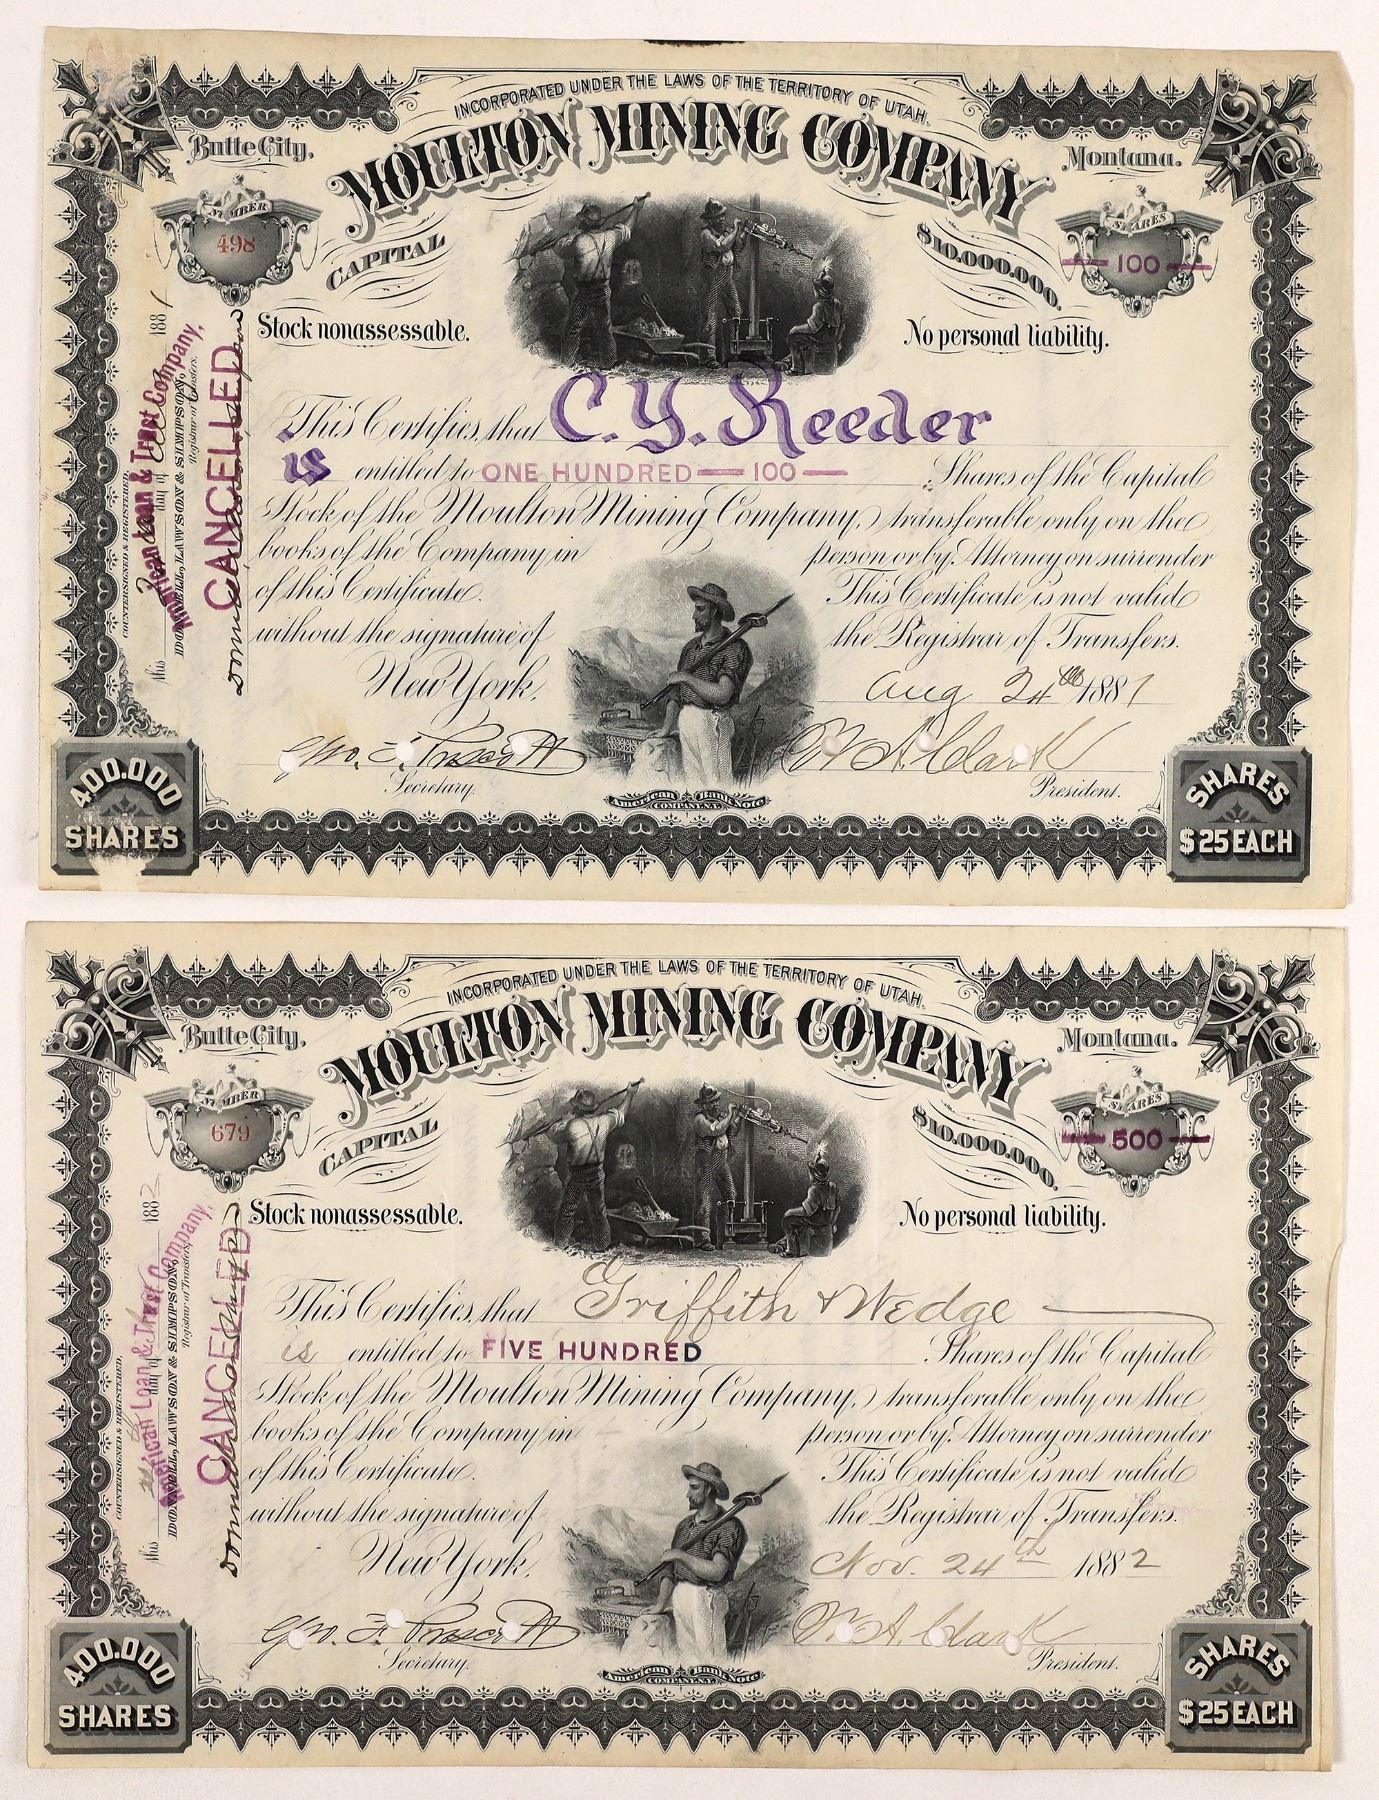 INCORPORATED UNDER THE LAWS OF THE TERRITORY OF UTAH.
Butte City,
MOULTON MINING COMPANY
Montana.
NUMBER
498
SHARES
100
CAPITAL
$10,000,000.
Stock nonassessable.
No personal liability.
This Certifies, that C. Y. Reeder
is entitled to ONE HUNDRED — 100 — Shares of the Capital
Stock of the Moulton Mining Company, transferable only on the
books of the Company in person or by Attorney on surrender
of this Certificate. This Certificate is not valid
without the signature of the Registrar of Transfers.
New York, Aug 24th 1881
Geo. F. Prescott W. A. Clark
Secretary. President.
American Bank Note
COMPANY, N.Y.
400.000
SHARES
SHARES
$25 EACH
COUNTERSIGNED & REGISTERED,
this day of 1881
American Loan & Trust Company,
DONNELL, LAWSON & SIMPSON,
Registrar of Transfers.
CANCELLED
INCORPORATED UNDER THE LAWS OF THE TERRITORY OF UTAH.
Butte City,
MOULTON MINING COMPANY
Montana.
NUMBER
679
SHARES
500
CAPITAL
$10,000,000.
Stock nonassessable.
No personal liability.
This Certifies, that Griffith & Wedge
is entitled to FIVE HUNDRED Shares of the Capital
Stock of the Moulton Mining Company, transferable only on the
books of the Company in person or by Attorney on surrender
of this Certificate. This Certificate is not valid
without the signature of the Registrar of Transfers.
New York, Nov. 24th 1882
Geo. F. Prescott W. A. Clark
Secretary. President.
American Bank Note
COMPANY, N.Y.
400.000
SHARES
SHARES
$25 EACH
COUNTERSIGNED & REGISTERED,
this day of 1882
American Loan & Trust Company,
DONNELL, LAWSON & SIMPSON,
Registrar of Transfers.
CANCELLED